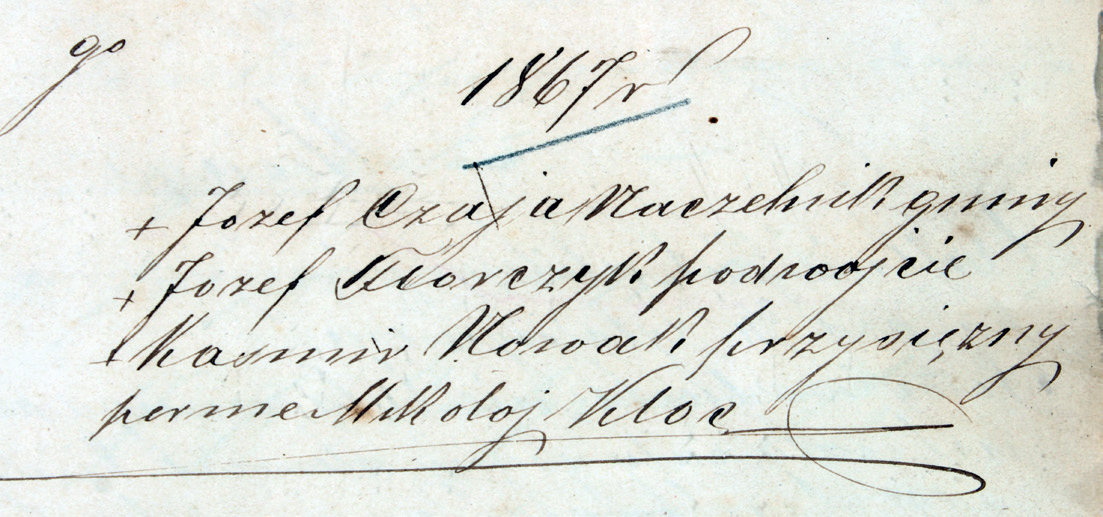 go
1867 r
+ Jozef Czaja Naczelnik gminy
+ Jozef Florczyk podwojcie
+ Kasmir Nowak przysiężny
perme Mikoloj Kloc